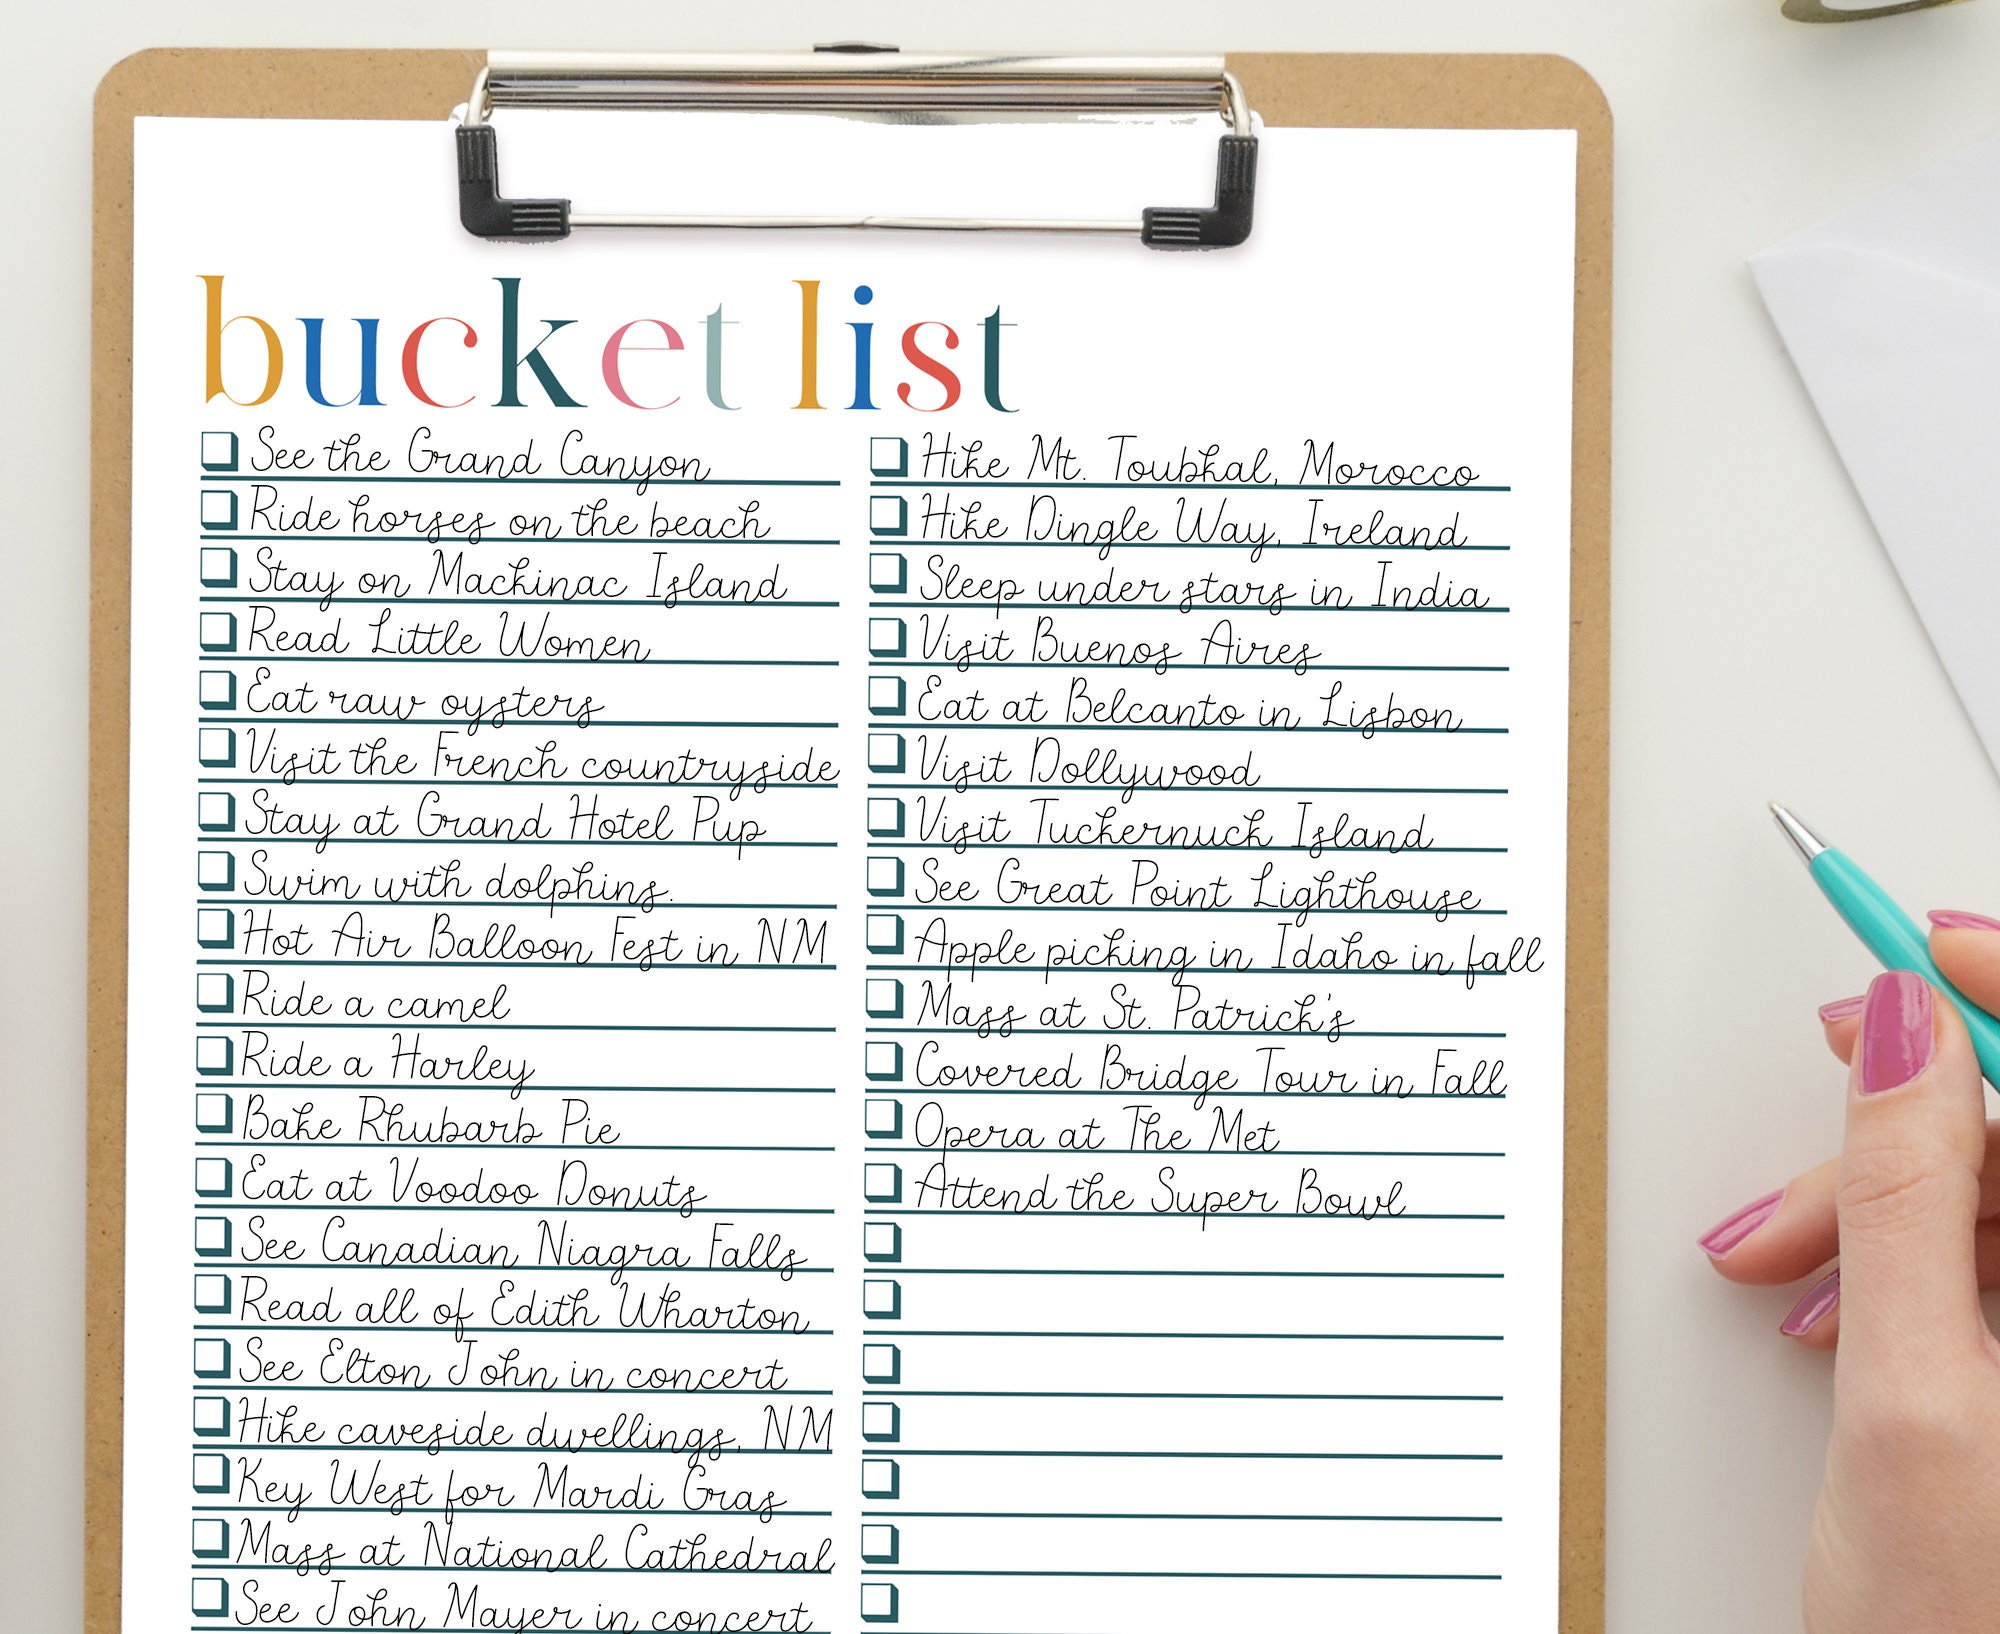 bucket list
See the Grand Canyon
Ride horses on the beach
Stay on Mackinac Island
Read Little Women
Eat raw oysters
Visit the French countryside
Stay at Grand Hotel Pup
Swim with dolphins.
Hot Air Balloon Fest in NM
Ride a camel
Ride a Harley
Bake Rhubarb Pie
Eat at Voodoo Donuts
See Canadian Niagra Falls
Read all of Edith Wharton
See Elton John in concert
Hike caveside dwellings, NM
Key West for Mardi Gras
Mass at National Cathedral
See John Mayer in concert
Hike Mt. Toubkal, Morocco
Hike Dingle Way, Ireland
Sleep under stars in India
Visit Buenos Aires
Eat at Belcanto in Lisbon
Visit Dollywood
Visit Tuckernuck Island
See Great Point Lighthouse
Apple picking in Idaho in fall
Mass at St. Patrick's
Covered Bridge Tour in Fall
Opera at The Met
Attend the Super Bowl